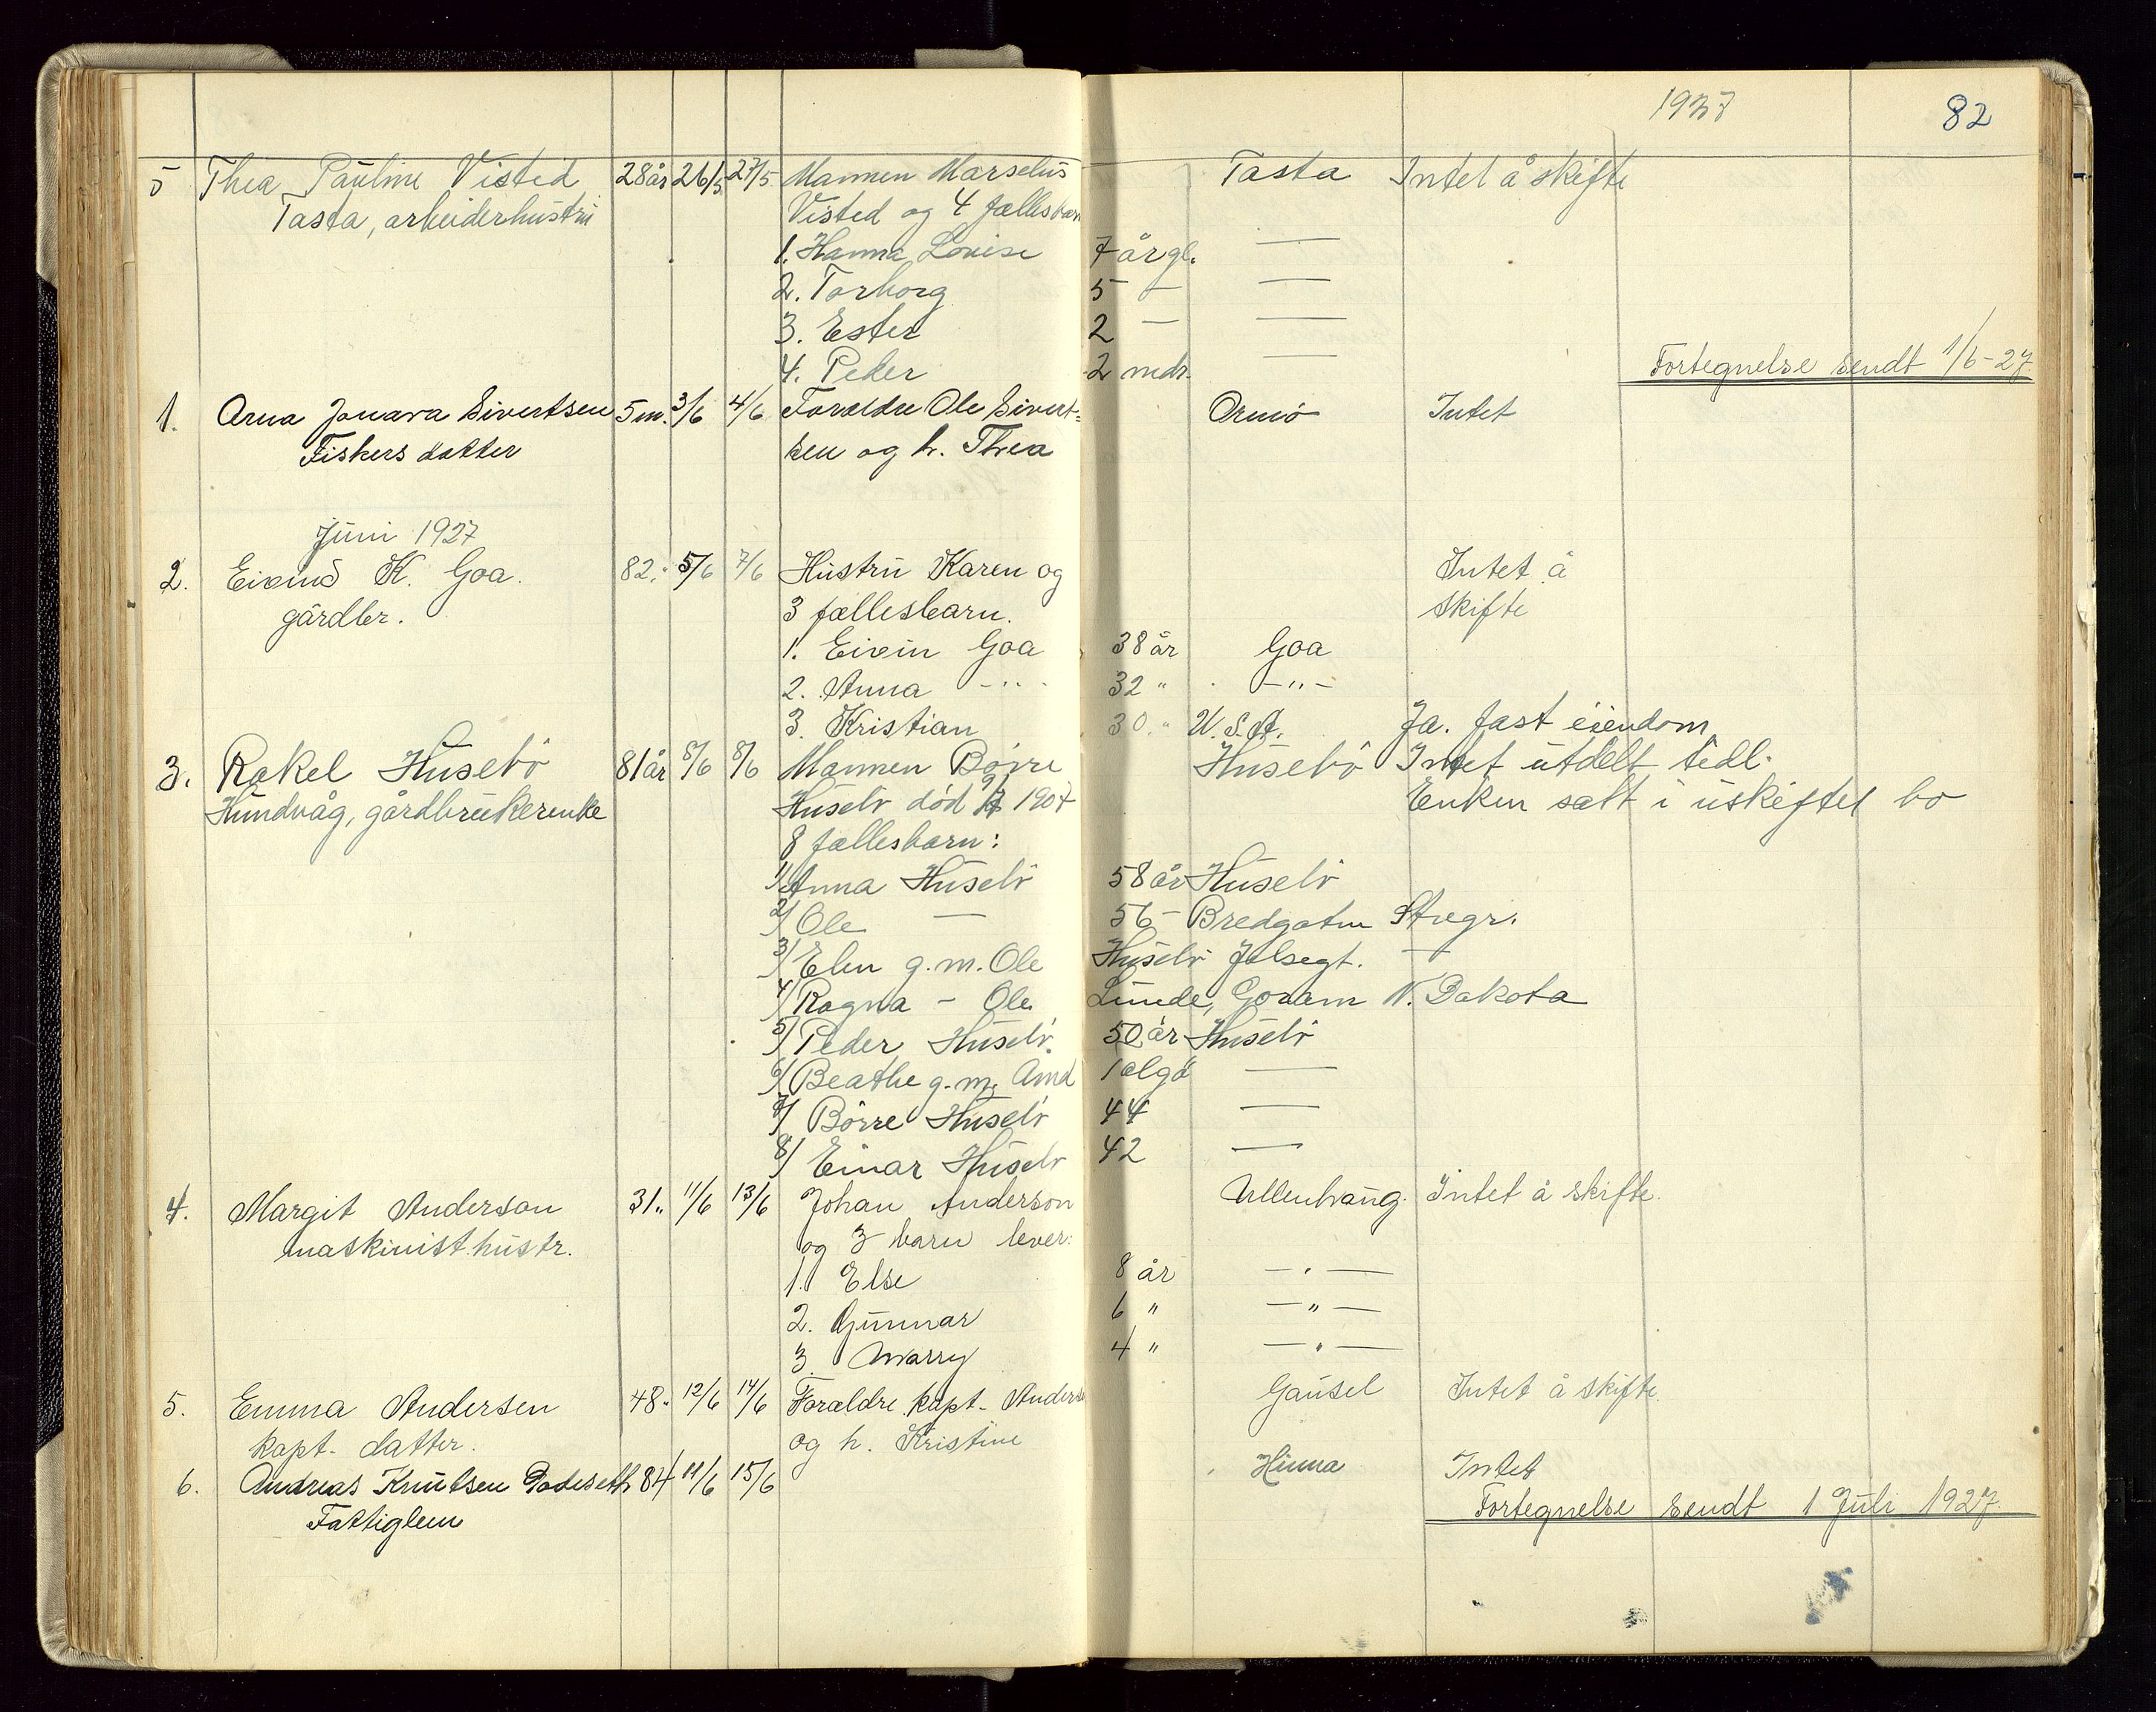 1927 82
5 Thea Pauline Visted 28 år 26/5 27/5 Mannen Marselius Tasta Intet å skifte
Tasta, arbeiderhustru Visted og 4 fællesbarn
1. Hanna Lovise 7 år gl. —
2. Torborg 5 — —
3. Ester 2 — —
4. Peder 2 mdr. —
Fortegnelse sendt 1/6-27
1. Arna Jonara Sivertsen 5 m. 3/6 4/6 Forældre Ole Sivert= Ormö Intet
Fiskers datter sen og h. Thea
Juni 1927
2. Eivind K. Goa. 82. 5/6 7/6 Hustru Karen og Intet å
gårdbr. 3 fællesbarn. skifte
1. Eivin Goa 38 år Goa
2. Anna -"- 32 " -"-
3. Kristian 30 " U.S.A. Ja. fast eiendom
3. Rakel Husebö 81 år 8/6 8/6 Mannen Börre Husebö Intet utdelt tidl.
Hundvåg, gårdbrukerenke Husebö död 1904 Enken satt i uskiftet bo
8 fællesbarn:
1/ Anna Husebö 58 år Husebö
2/ Ole — 56 - Bredgaten Stvgr.
3/ Elen g.m. Ole Husebö Jelsegt. —
4/ Ragna - Ole Lunde, Goram N. Dakota
5/ Peder Husebö 50 år Husebö
6/ Beathe g.m. Amd —
7/ Börre Husebö 44 —
8/ Einar Husebö 42 —
4. Margit Anderson 31.. 11/6 13/6 Johan Anderson Ullenhaug. Intet å skifte.
maskinist.hustr. og 3 barn lever:
1. Else 8 år —"—
2. Gunnar 6 " —"—
3 Warry 4 " —"—
5. Emma Andersen 48. 12/6 14/6 Forældre kapt. Anderse Gausel Intet å skifte.
kapt. datter. og h. Kristine
6. Andreas Knutsen Godeseth 84 11/6 15/6 Hinna Intet
Fattiglem Fortegnelse sendt 1 Juli 1927.